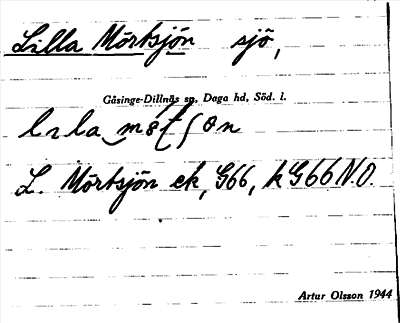 Lilla Mörtsjön sjö,
Gåsinge-Dillnäs sn, Daga hd, Söd. l.
lɩla mötʃøn
L. Mörtsjön ek, G66, k G66 N.O.
Artur Olsson 1944